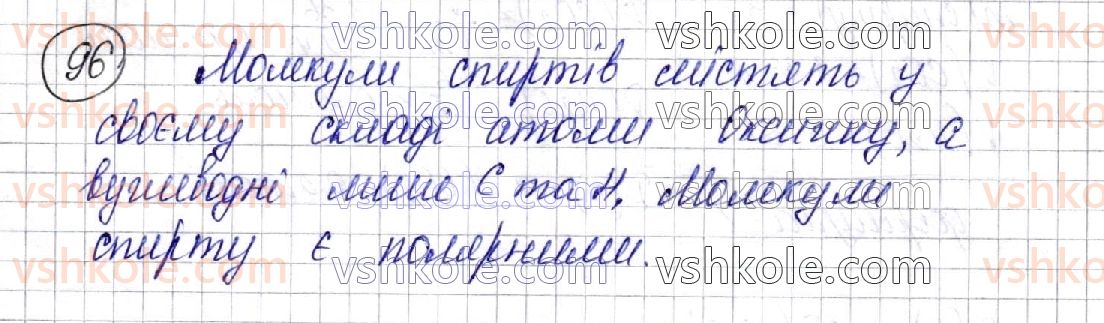 96 Молекули спиртів містять у
своєму складі атоми Оксигену, а
вуглеводні лише С та Н. Молекули
спирту є полярними.
vshkole.com vshkole.com vshkole.com
vshkole.com vshkole.com vshkole.com
vshkole.com vshkole.com vshkole.com
vshkole.com vshkole.com vshkole.com